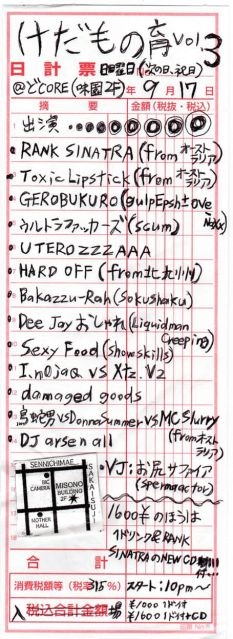 けだもの育 vol.3
日計票 日曜日(次の日、祝日)
@どCORE(味園2F) 年 9月 17日
摘要 金額(税抜・税込)
出演
RANK SINATRA (from オーストラリア)
Toxic Lipstick (from オーストラリア)
GEROBUKURO (gulpEpsh±ove Nexx)
ウルトラファッカーズ (scum)
UTEROzZZAAA
HARD OFF (from 北九州)
Bakazzu-Rah (Sokushaku)
Dee Jay おしゃれ (Liquidman Creeping)
Sexy Food (Showskills)
I.n0jaq vs Xfz.V2
damaged goods
鳥蛇男 vs Donna Summer vs MC Slurry (from オーストラリア)
DJ arsenall
VJ: お尻サファイア (spermaactor)
SENNICHIMAE
SAKAISUJI
BIC CAMERA
MISONO BUILDING 2F
MOTHER HALL
1600¥のほうは
1ドリンクとRANK
SINATRAのNEW CD
付…
合計
消費税額等(税率315%) スタート:10pm〜
入 税込合計金額 場 ¥1000 1ドリ付
¥1600 1ドリ付+CD